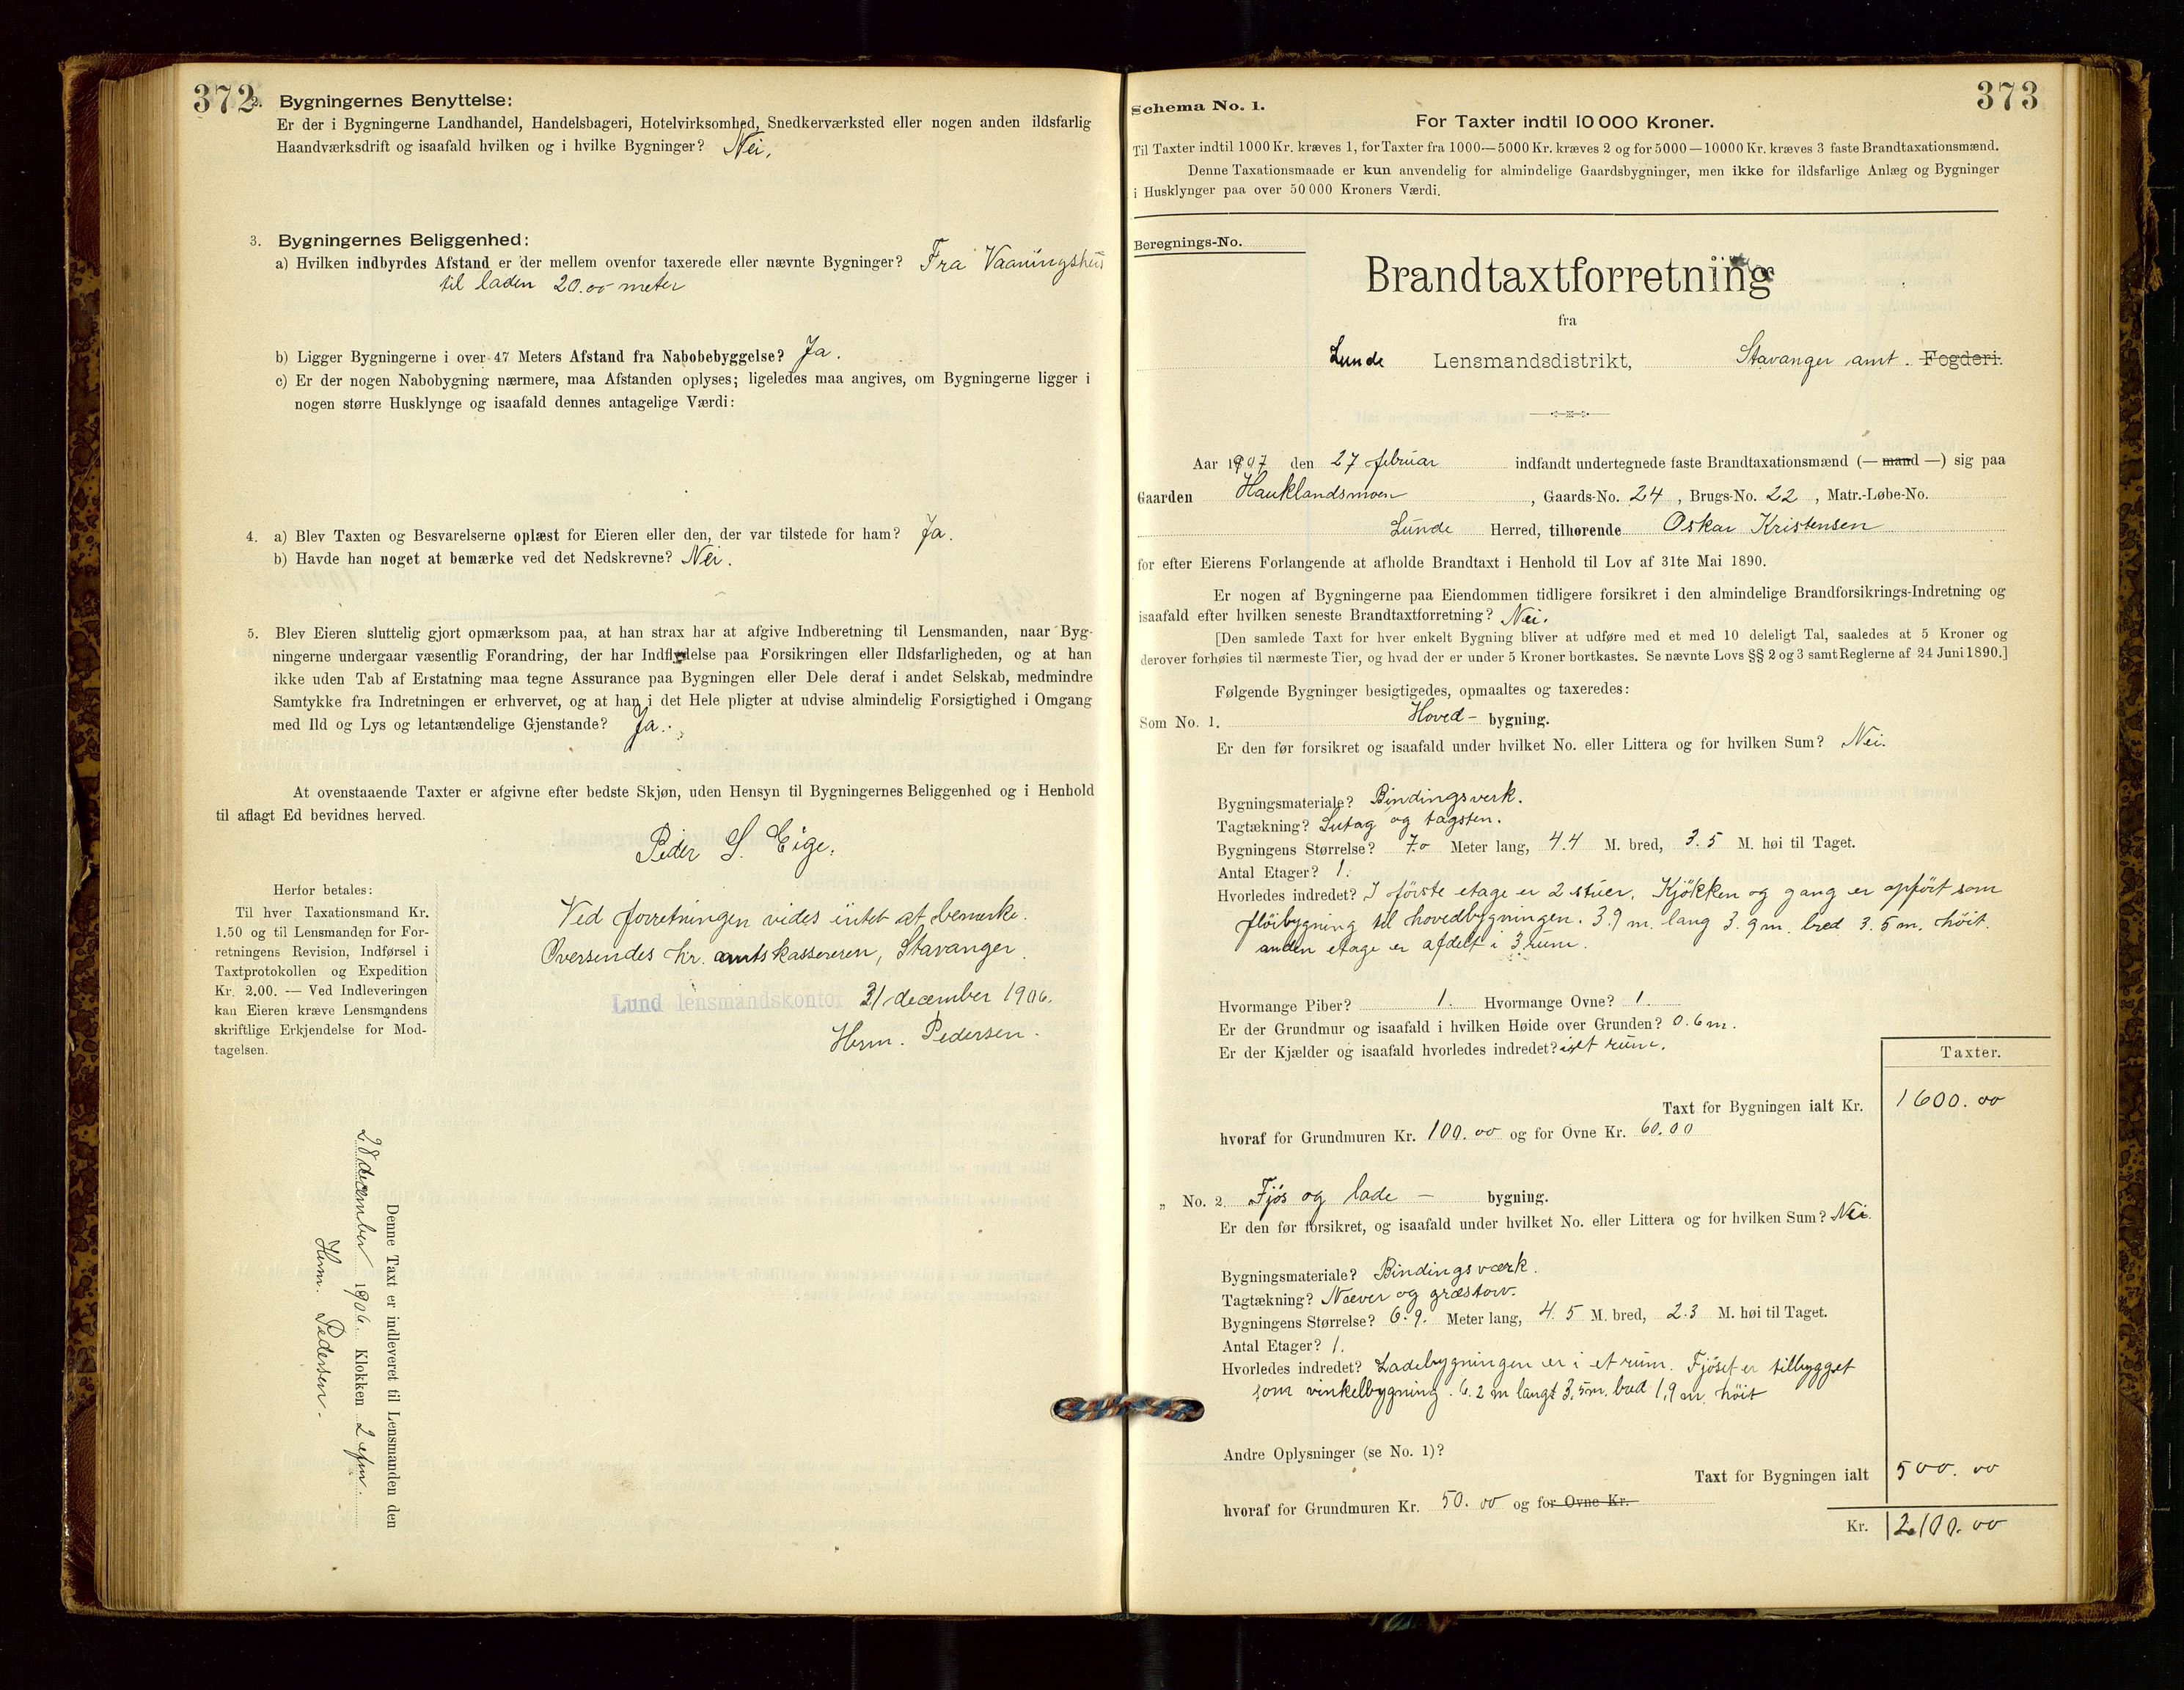 372
2. Bygningernes Benyttelse:
Er der i Bygningerne Landhandel, Handelsbageri, Hotelvirksomhed, Snedkerværksted eller nogen anden ildsfarlig
Haandværksdrift og isaafald hvilken og i hvilke Bygninger? Nei.
3. Bygningernes Beliggenhed:
a) Hvilken indbyrdes Afstand er der mellem ovenfor taxerede eller nævnte Bygninger? Fra Vaaningshus
til laden 20.00 meter
b) Ligger Bygningerne i over 47 Meters Afstand fra Nabobebyggelse? Ja.
c) Er der nogen Nabobygning nærmere, maa Afstanden oplyses; ligeledes maa angives, om Bygningerne ligger i
nogen større Husklynge og isaafald dennes antagelige Værdi:
4. a) Blev Taxten og Besvarelserne oplæst for Eieren eller den, der var tilstede for ham? Ja.
b) Havde han noget at bemærke ved det Nedskrevne? Nei.
5. Blev Eieren sluttelig gjort opmærksom paa, at han strax har at afgive Indberetning til Lensmanden, naar Byg-
ningerne undergaar væsentlig Forandring, der har Indflydelse paa Forsikringen eller Ildsfarligheden, og at han
ikke uden Tab af Erstatning maa tegne Assurance paa Bygningen eller Dele deraf i andet Selskab, medmindre
Samtykke fra Indretningen er erhvervet, og at han i det Hele pligter at udvise almindelig Forsigtighed i Omgang
med Ild og Lys og letantændelige Gjenstande? Ja.
At ovenstaaende Taxter er afgivne efter bedste Skjøn, uden Hensyn til Bygningernes Beliggenhed og i Henhold
til aflagt Ed bevidnes herved.
Peder S. Eige.
Herfor betales:
Til hver Taxationsmand Kr.
1.50 og til Lensmanden for For-
retningens Revision, Indførsel i
Taxtprotokollen og Expedition
Kr. 2.00. — Ved Indleveringen
kan Eieren kræve Lensmandens
skriftlige Erkjendelse for Mod-
tagelsen.
Ved forretningen vides intet at bemerke.
Oversendes hr. amtskassereren, Stavanger.
Lund lensmandskontor 31 december 1906.
Herm. Pedersen.
Denne Taxt er indleveret til Lensmanden den
28 december 1906. Klokken 2 efm.
Herm. Pedersen.
373
Schema No. 1.
For Taxter indtil 10 000 Kroner.
Til Taxter indtil 1000 Kr. kræves 1, for Taxter fra 1000—5000 Kr. kræves 2 og for 5000—10000 Kr. kræves 3 faste Brandtaxationsmænd.
Denne Taxationsmaade er kun anvendelig for almindelige Gaardsbygninger, men ikke for ildsfarlige Anlæg og Bygninger
i Husklynger paa over 50 000 Kroners Værdi.
Beregnings-No.
Brandtaxtforretning
fra
Lunde Lensmandsdistrikt, Stavanger amt. Fogderi.
Aar 1907 den 27 februar indfandt undertegnede faste Brandtaxationsmænd (— mand —) sig paa
Gaarden Hauklandsmoen, Gaards-No. 24, Brugs-No. 22, Matr.-Løbe-No.
Lunde Herred, tilhørende Oskar Kristensen
for efter Eierens Forlangende at afholde Brandtaxt i Henhold til Lov af 31te Mai 1890.
Er nogen af Bygningerne paa Eiendommen tidligere forsikret i den almindelige Brandforsikrings-Indretning og
isaafald efter hvilken seneste Brandtaxtforretning? Nei.
[Den samlede Taxt for hver enkelt Bygning bliver at udføre med et med 10 deleligt Tal, saaledes at 5 Kroner og
derover forhøies til nærmeste Tier, og hvad der er under 5 Kroner bortkastes. Se nævnte Lovs §§ 2 og 3 samt Reglerne af 24 Juni 1890.]
Følgende Bygninger besigtigedes, opmaaltes og taxeredes:
Som No. 1. Hoved- bygning.
Er den før forsikret og isaafald under hvilket No. eller Littera og for hvilken Sum? Nei.
Bygningsmateriale? Bindingsverk.
Tagtækning? Sutag og tagsten.
Bygningens Størrelse? 7.0 Meter lang, 4.4 M. bred, 3.5 M. høi til Taget.
Antal Etager? 1.
Hvorledes indredet? I første etage er 2 stuer. Kjøkken og gang er opført som
fløibygning til hovedbygningen. 3.9 m. lang 3.9 m. bred 3.5 m. høit.
anden etage er afdelt i 3 rum.
Hvormange Piber? 1. Hvormange Ovne? 1.
Er der Grundmur og isaafald i hvilken Høide over Grunden? 0.6 m.
Er der Kjælder og isaafald hvorledes indredet? i et rum.
Taxter.
Taxt for Bygningen ialt Kr. 1600.00
hvoraf for Grundmuren Kr. 100.00 og for Ovne Kr. 60.00
„ No. 2. Fjøs og lade — bygning.
Er den før forsikret, og isaafald under hvilket No. eller Littera og for hvilken Sum? Nei.
Bygningsmateriale? Bindingsværk.
Tagtækning? Næver og græstorv.
Bygningens Størrelse? 6.9. Meter lang, 4.5 M. bred, 2.3 M. høi til Taget.
Antal Etager? 1.
Hvorledes indredet? Ladebygningen er i et rum. Fjøset er tilbygget
som vinkelbygning. 6.2 m langt 3.5 m. bred 1,9 m. høit
Andre Oplysninger (se No. 1)?
Taxt for Bygningen ialt 500.00
hvoraf for Grundmuren Kr. 50.00 og for Ovne Kr.
Kr. 2100.00